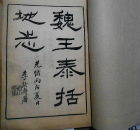 魏王泰括
地志
光緒丙戌夏日